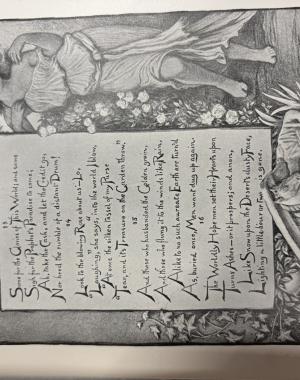 13
Some for the Glories of This World; and some
Sigh for the Prophet's Paradise to come;
Ah, take the Cash, and let the Credit go,
Nor heed the rumble of a distant Drum!
14
Look to the blowing Rose about us—"Lo,
"Laughing," she says, "into the world I blow,
"At once the silken tassel of my Purse
"Tear, and its Treasure on the Garden throw."
15
And those who husbanded the Golden grain,
And those who flung it to the winds like Rain,
Alike to no such aureate Earth are turn'd
As, buried once, Men want dug up again.
16
The Worldly Hope men set their Hearts upon
Turns Ashes—or it prospers; and anon,
Like Snow upon the Desert's dusty Face,
Lighting a little hour or two—is gone.